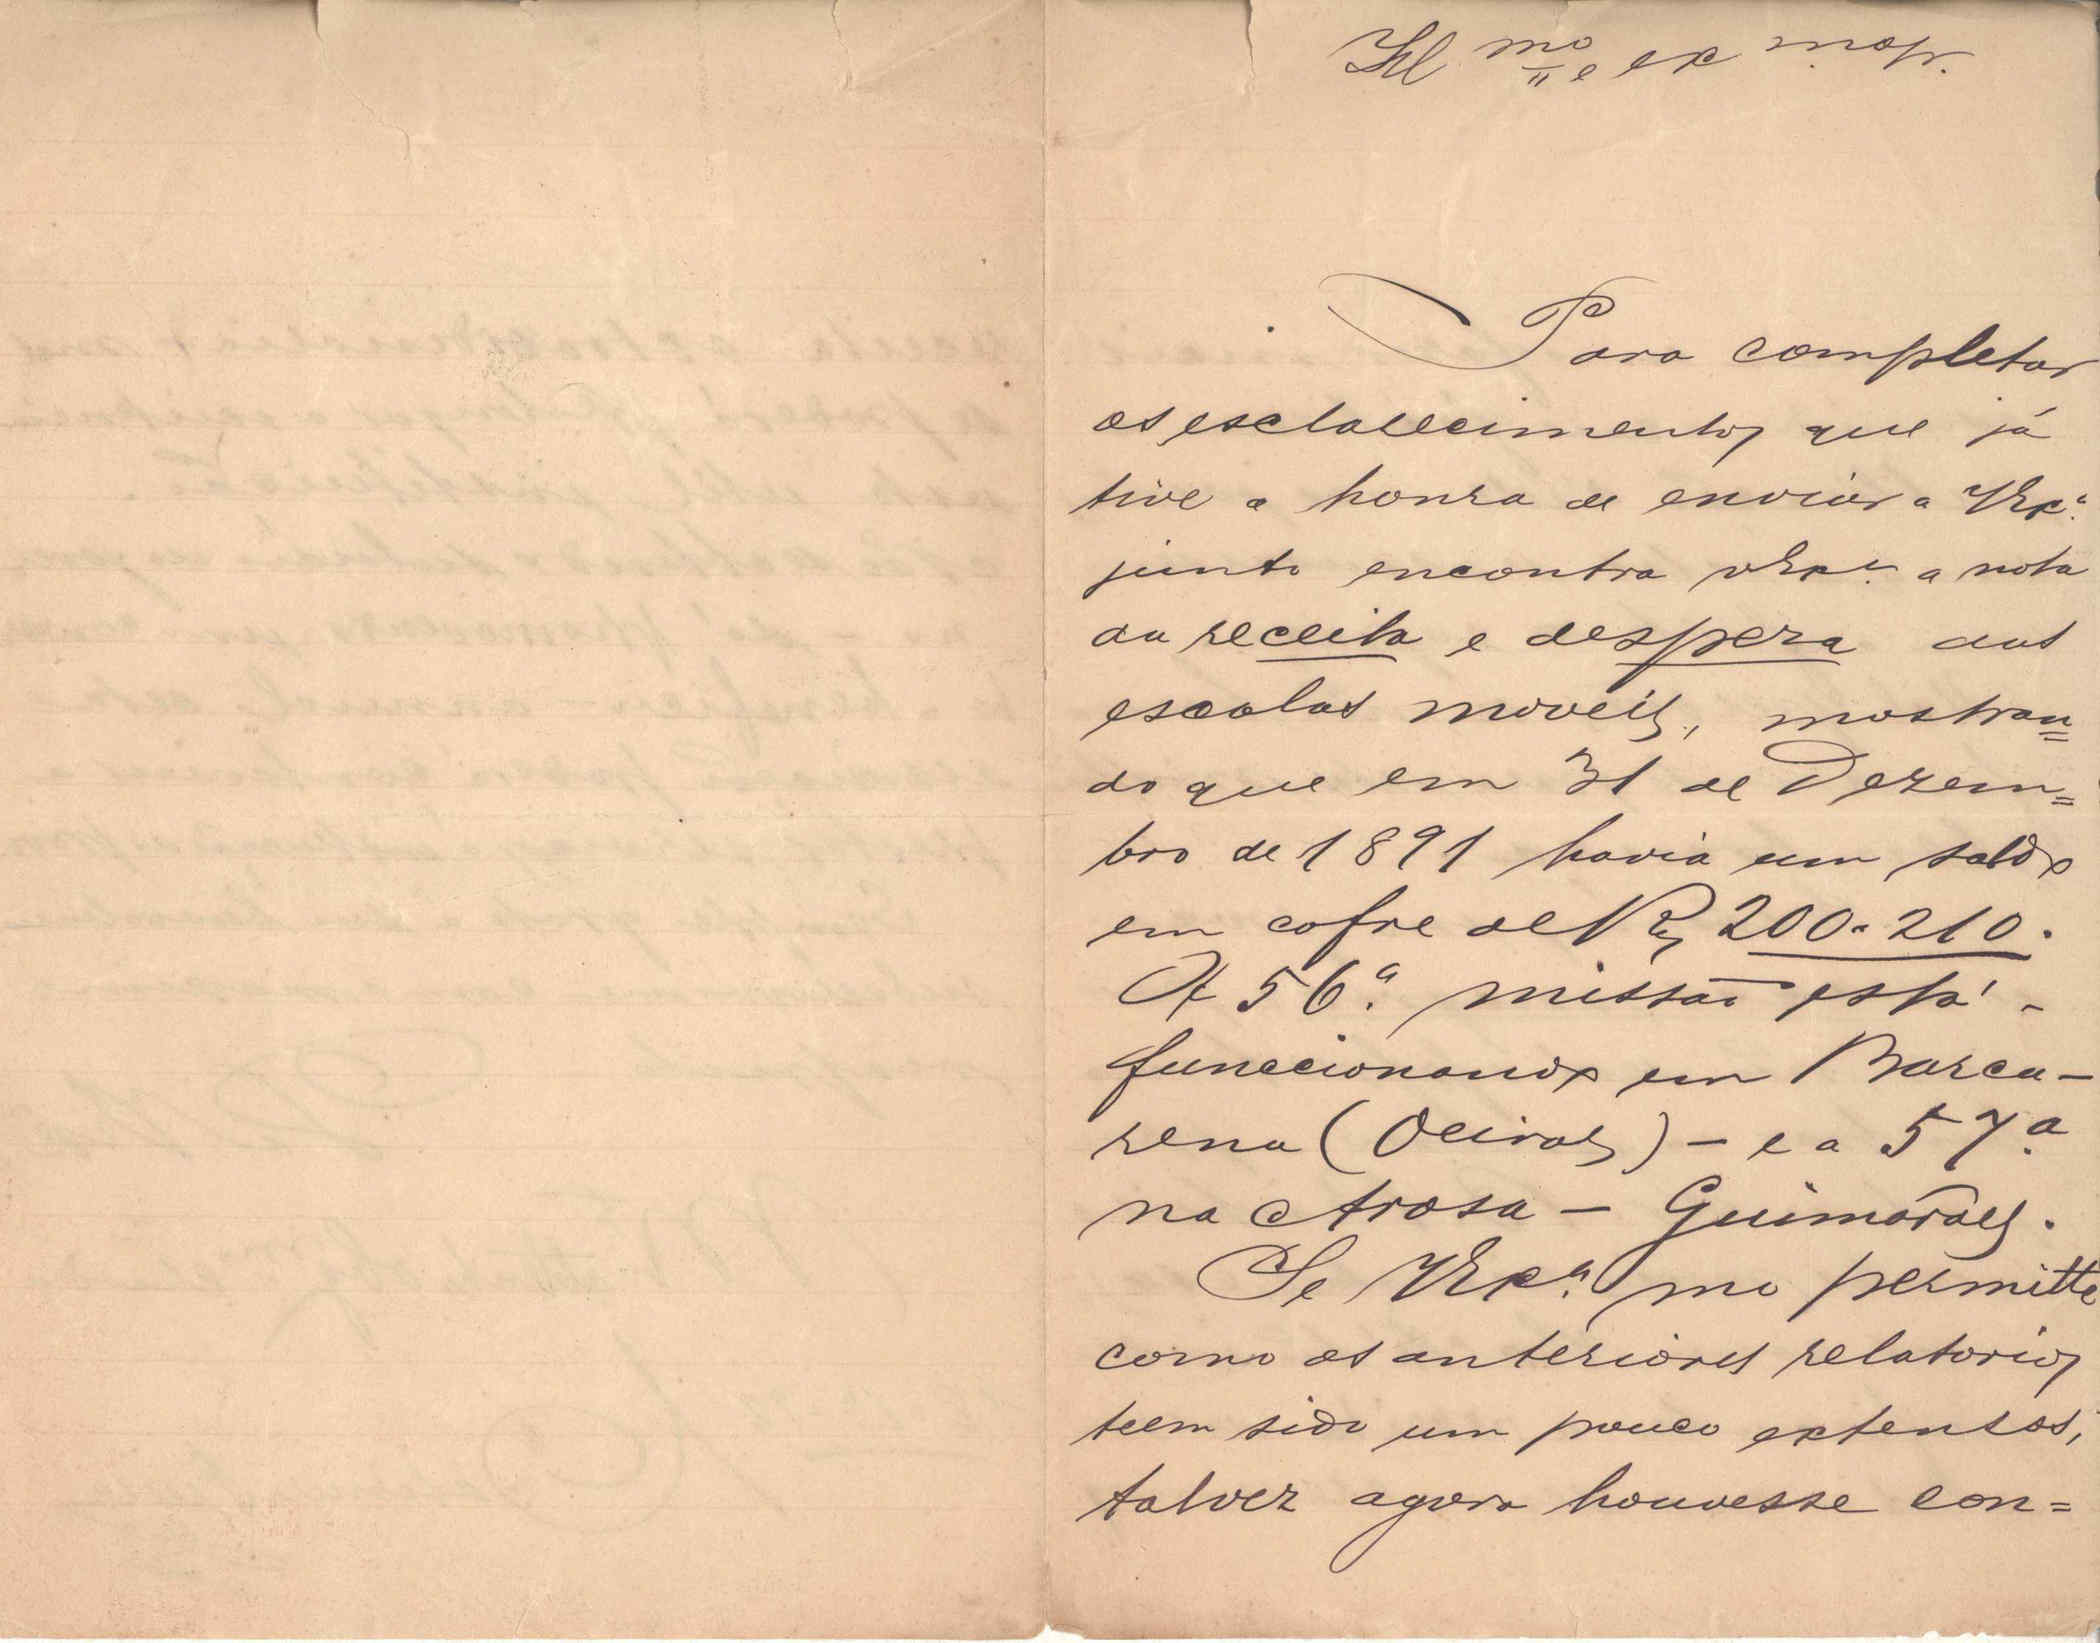 Ill mo e ex mo sr.
Para completar
os esclarecimentos que já
tive a honra de enviar a VExª.
junto encontra vExª. a nota
da receita e despeza das
escolas moveis, mostran=
do que em 31 de Dezem=
bro de 1891 havia um saldo
em cofre de Rs 200.210.
A 56ª. missão está -
funccionando em Barca-
rena (Oeiras) - e a 57ª.
na Arosa - Guimarães.
Se VExª. mo permitte
como os anteriores relatorios
teem sido um pouco extensos,
talvez agora houvesse con=